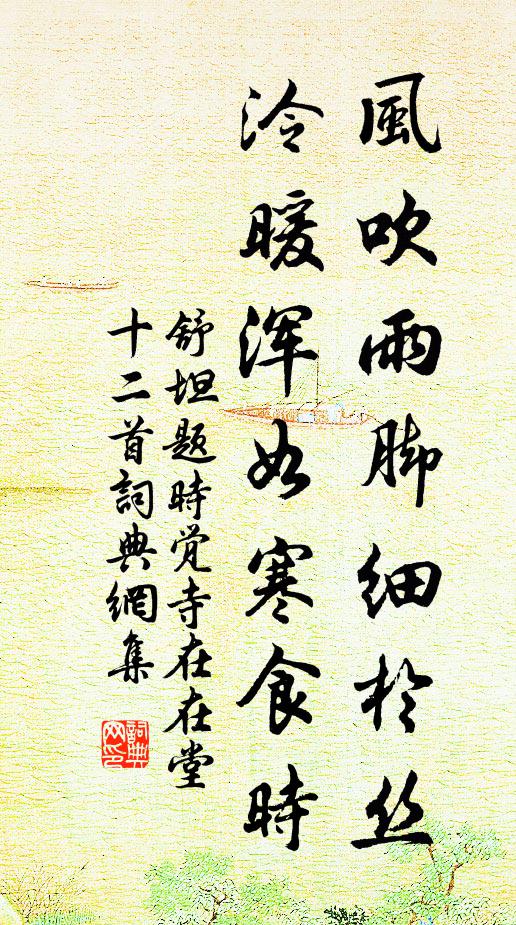 風吹雨脚细於丝
冷暖浑如寒食時
舒坦题時觉寺在在堂
十二首詞典網集
詞典网印